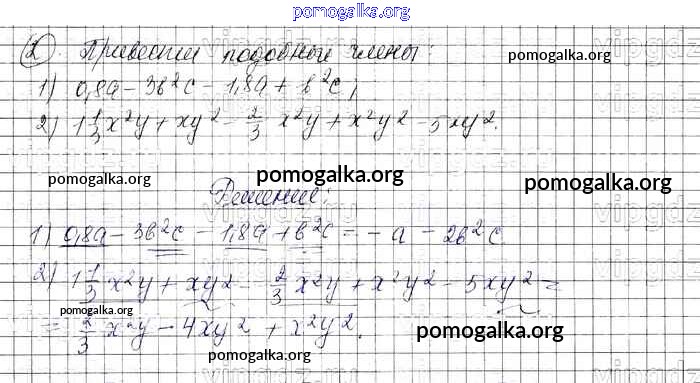 pomogalka.org
2. Привести подобные члены:
pomogalka.org
1) 0,8a - 3b²c - 1,8a + b²c;
2) 1 1/3 x²y + xy² - 2/3 x²y + x²y² - 5xy².
pomogalka.org pomogalka.org pomogalka.org
Решение:
1) 0,8a - 3b²c - 1,8a + b²c = -a - 2b²c
2) 1 1/3 x²y + xy² - 2/3 x²y + x²y² - 5xy² =
pomogalka.org
= 2/3 x²y - 4xy² + x²y².
pomogalka.org
pomogalka.org